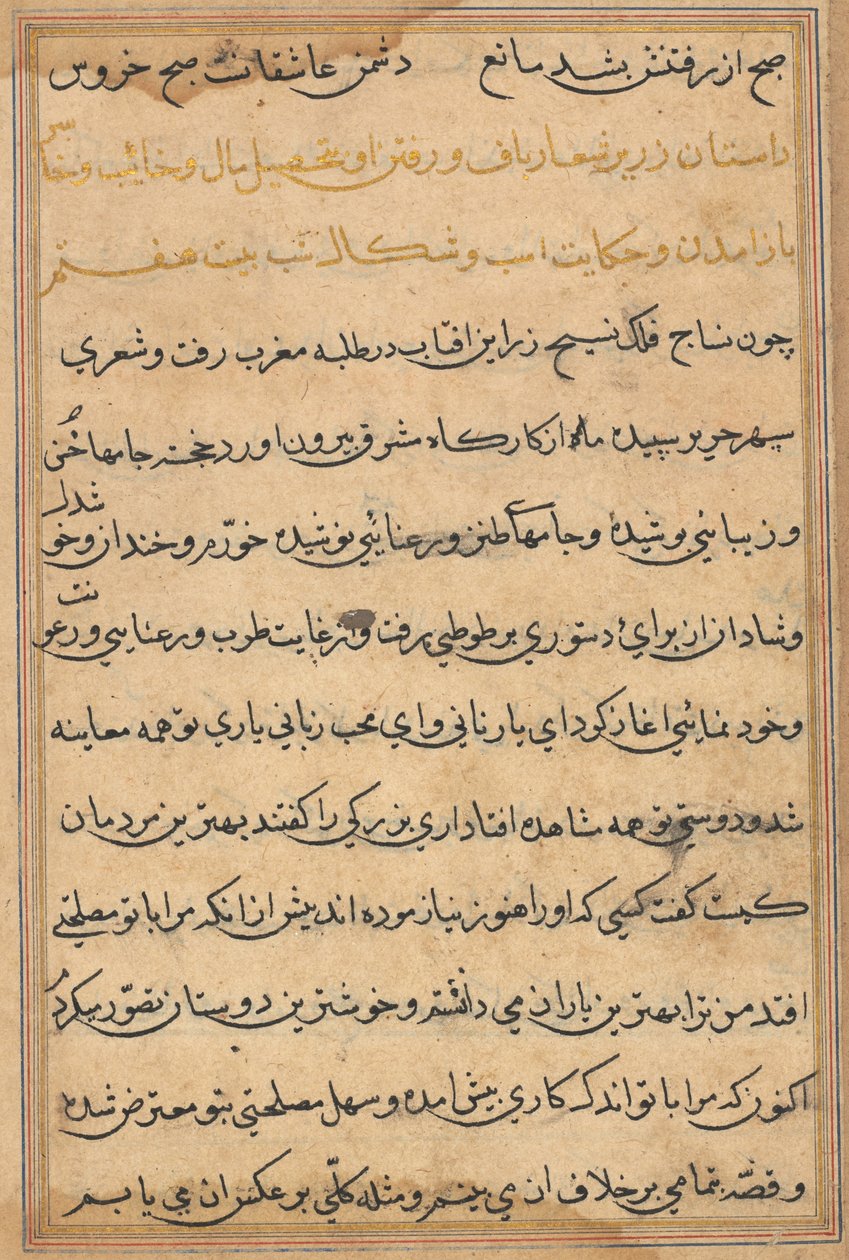 صبح از رفتنش بشد مانع دشمن عاشقانت صبح خروس
داستان زریر شعار باف و رفتن او بتحصیل مال و خائب و خاسر
باز امدن و حکایت اسب و شکال شب بیت هفتم
چون نساج فلک نسیج زراین افتاب در طلبه مغرب رفت و شعری
سپهر حریر سپیده ماه از کارکاه مشرق بیرون اورد خجسته جامها حُسن
و زیبائی پوشیده و جامهای طنز و رعنائی نوشیده خورّم و خندان و خوشدل
و شادان از برای دستوری بر طوطی برفت و از غایت طرب و رعنایی و رعونت
و خود نمائی اغاز کرد ای یار نانی و ای محب زبانی یاری تو همه معاینه
شد و دوستی تو همه مشاهده افتاد اری بزرکی را کفتند بهترین مردمان
کیست کفت کسی که او را هنوز نیازموده اند بیش از انکه مرا با تو مصلحتی
افتد من ترا بهترین یاران می دانستم و خوشترین دوستان تصوّر میکردم
اکنون که مرا با تو اندک کاری بیش امده و سهل مصلحتی بتو معترض شده
و قصّه بتمامی بر خلاف ان می بینم و مثله کلّی بر عکس ان می یابم